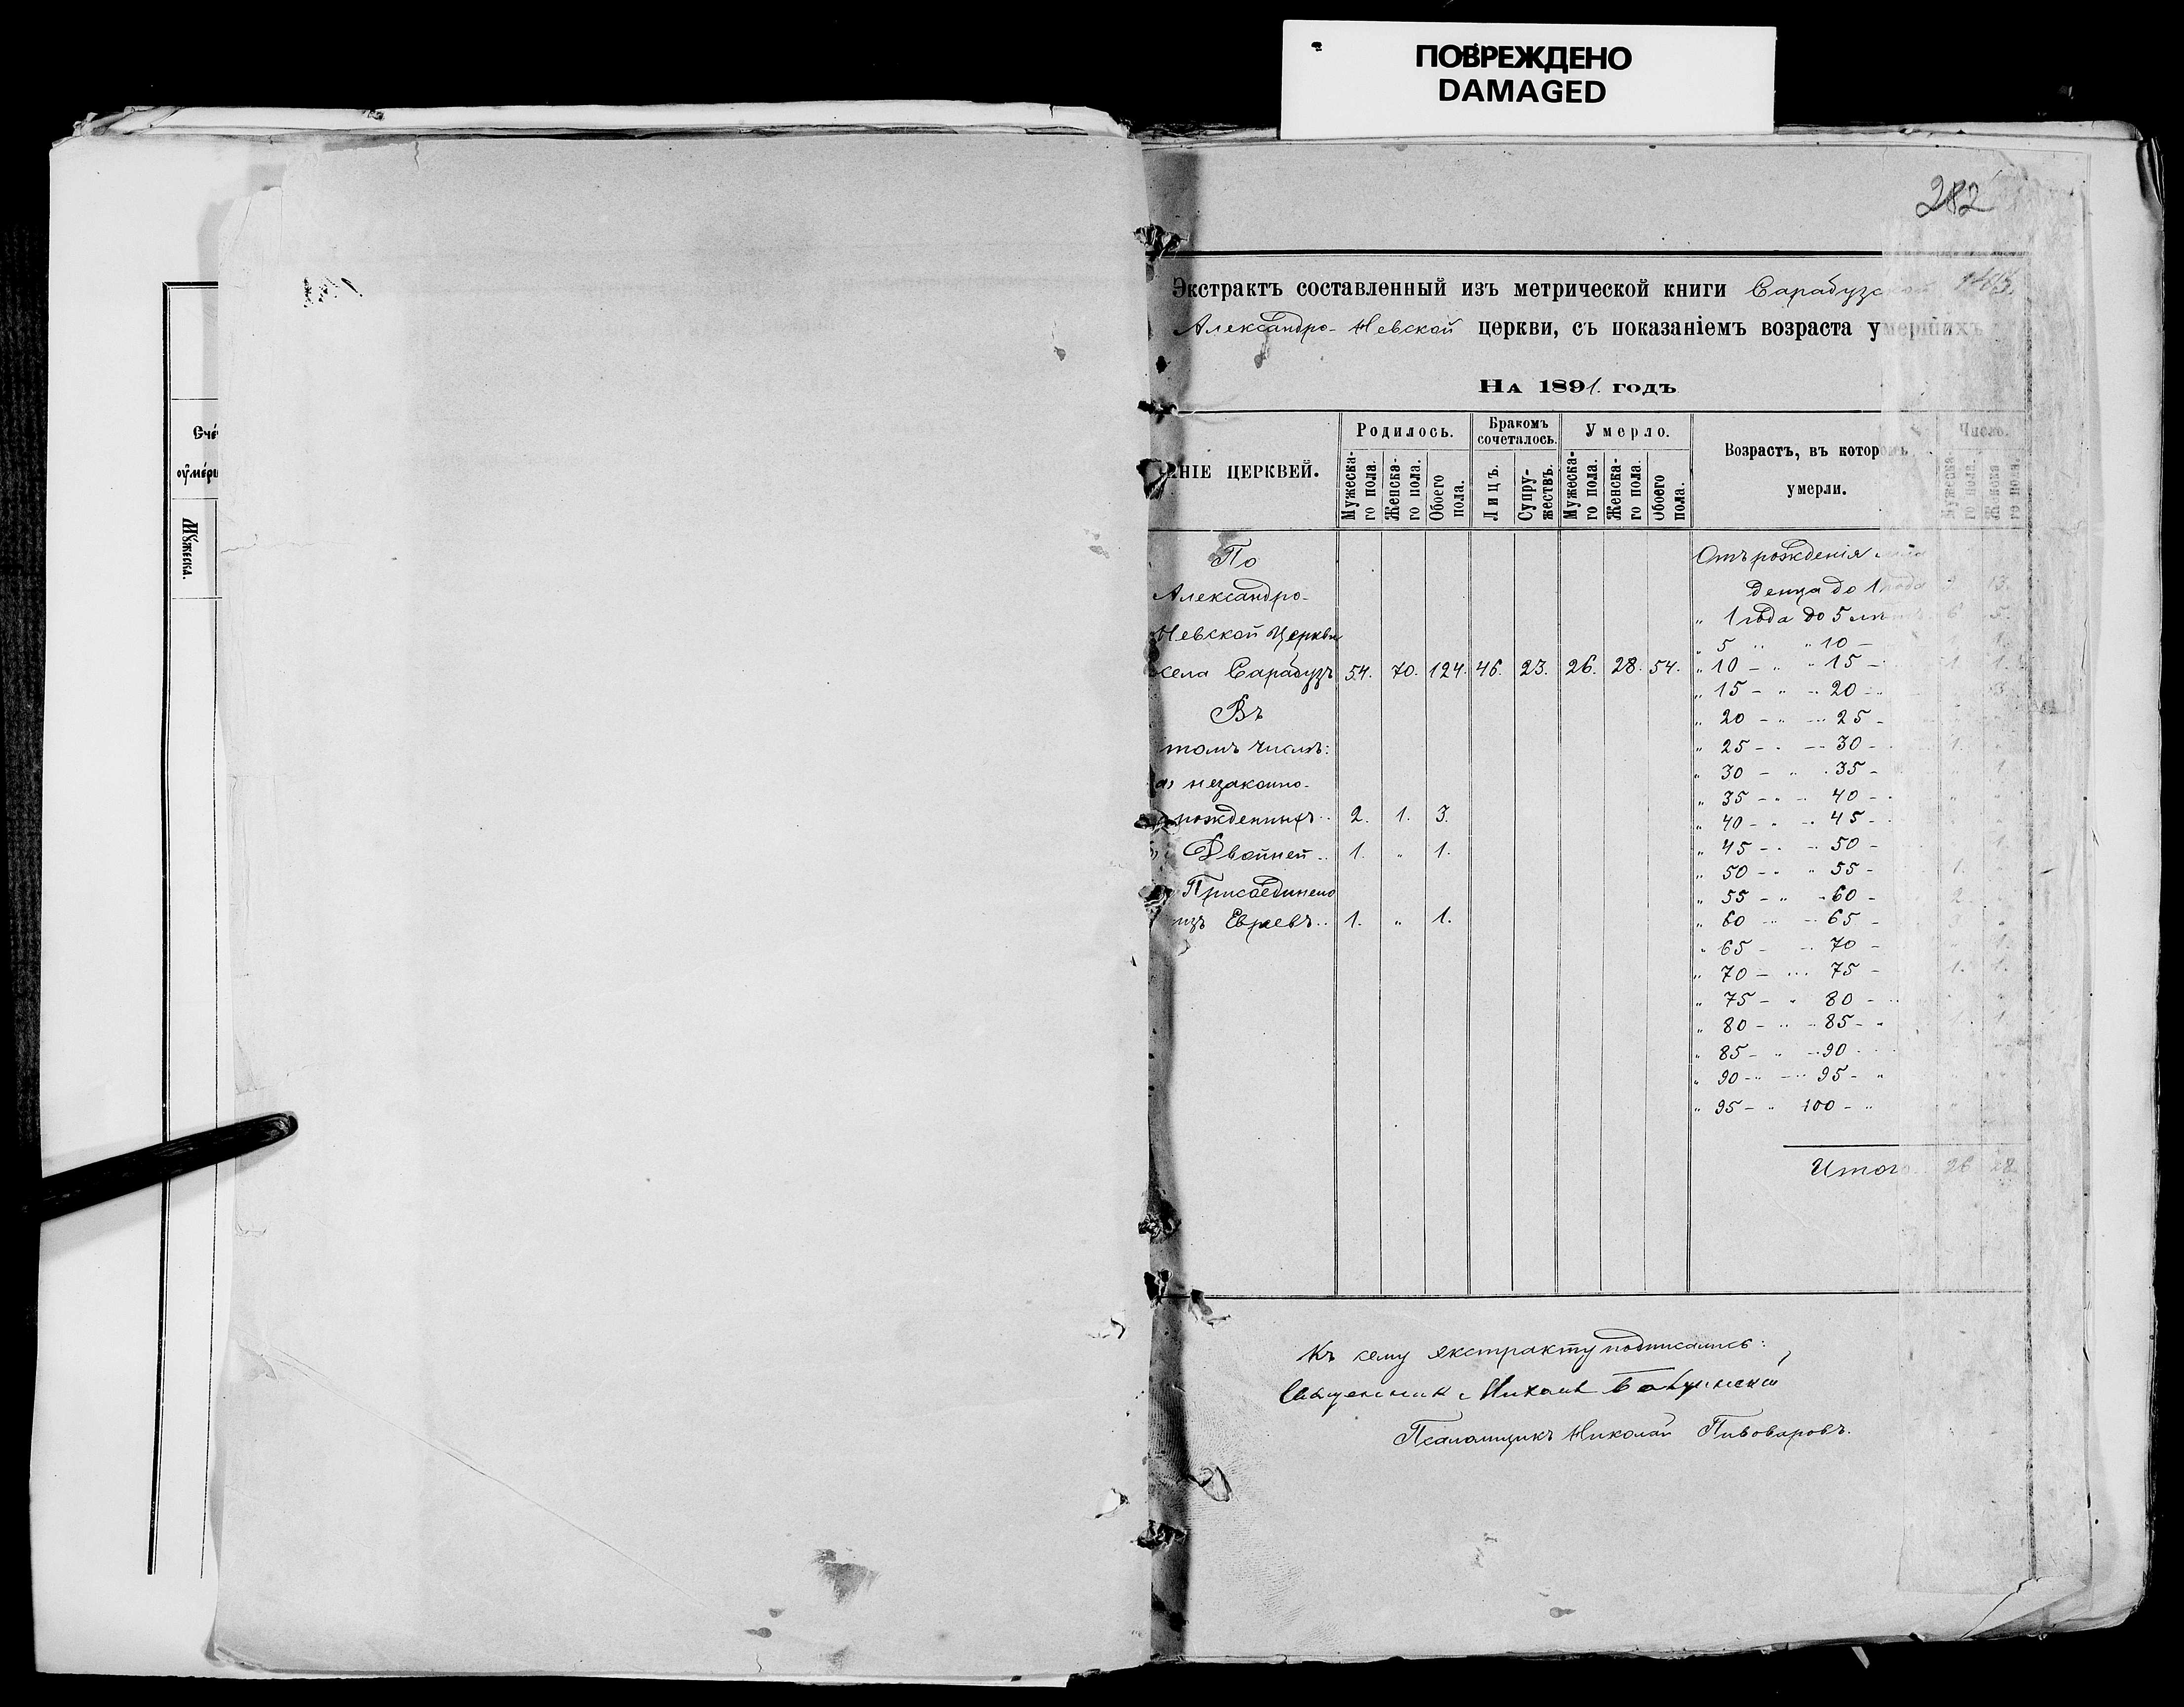 ПОВРЕЖДЕНО
DAMAGED
282
Экстрактъ составленный изъ метрической книги Сарабузс
Александро-Невской церкви, съ показаніемъ возраста умершихъ
На 1891. годъ
Счё
оу҆ме́рш
Мꙋжеска.
НІЕ ЦЕРКВЕЙ.
Родилось.
Бракомъ сочеталось.
Умерло.
Возрастъ, въ которомъ умерли.
Число.
Мужеска-го пола.
Женска-го пола.
Обоего пола.
Лицъ.
Супру-жествъ.
Мужеска-го пола.
Женска-го пола.
Обоего пола.
Мужеска-го пола.
Женска го пола.
По
Александро-
Невской Церкви
села Сарабузъ 54. 70. 124. 46. 23. 26. 28. 54.
Въ
томъ числѣ:
а) незаконно-
рожденныхъ.. 2. 1. 3.
Двойней.. 1. „ 1.
Присоединено
изъ Евреевъ.. 1. „ 1.
Отъ рожденія
денца до 1 года 13.
„ 1 года до 5 лѣтъ 6 5.
„ 5 „ „ 10 – 1.
„ 10 – „ „ 15 – 1. 1.
„ 15 – „ – 20 – 3.
„ 20 – „ – 25 –
„ 25 – „ – 30 – 1.
„ 30 – „ „ 35 – 1.
„ 35 – „ – 40 –
„ 40 – „ – 45 –
„ 45 – „ – 50 – 1.
„ 50 – „ „ 55 – 1.
„ 55 – „ – 60 – 2.
„ 60 – „ – 65 – 3.
„ 65 – „ 70 – 1.
„ 70 – „ 75 – 1. 1.
„ 75 – „ 80 –
„ 80 – „ – 85 – „ 1. 1.
„ 85 – „ – 90
„ 90 – „ – 95 – „
„ 95 – „ 100 – „
Итого 26 28
Къ сему экстракту подписались:
Священникъ Михаил
Псаломщикъ Николай Пивоваровъ.